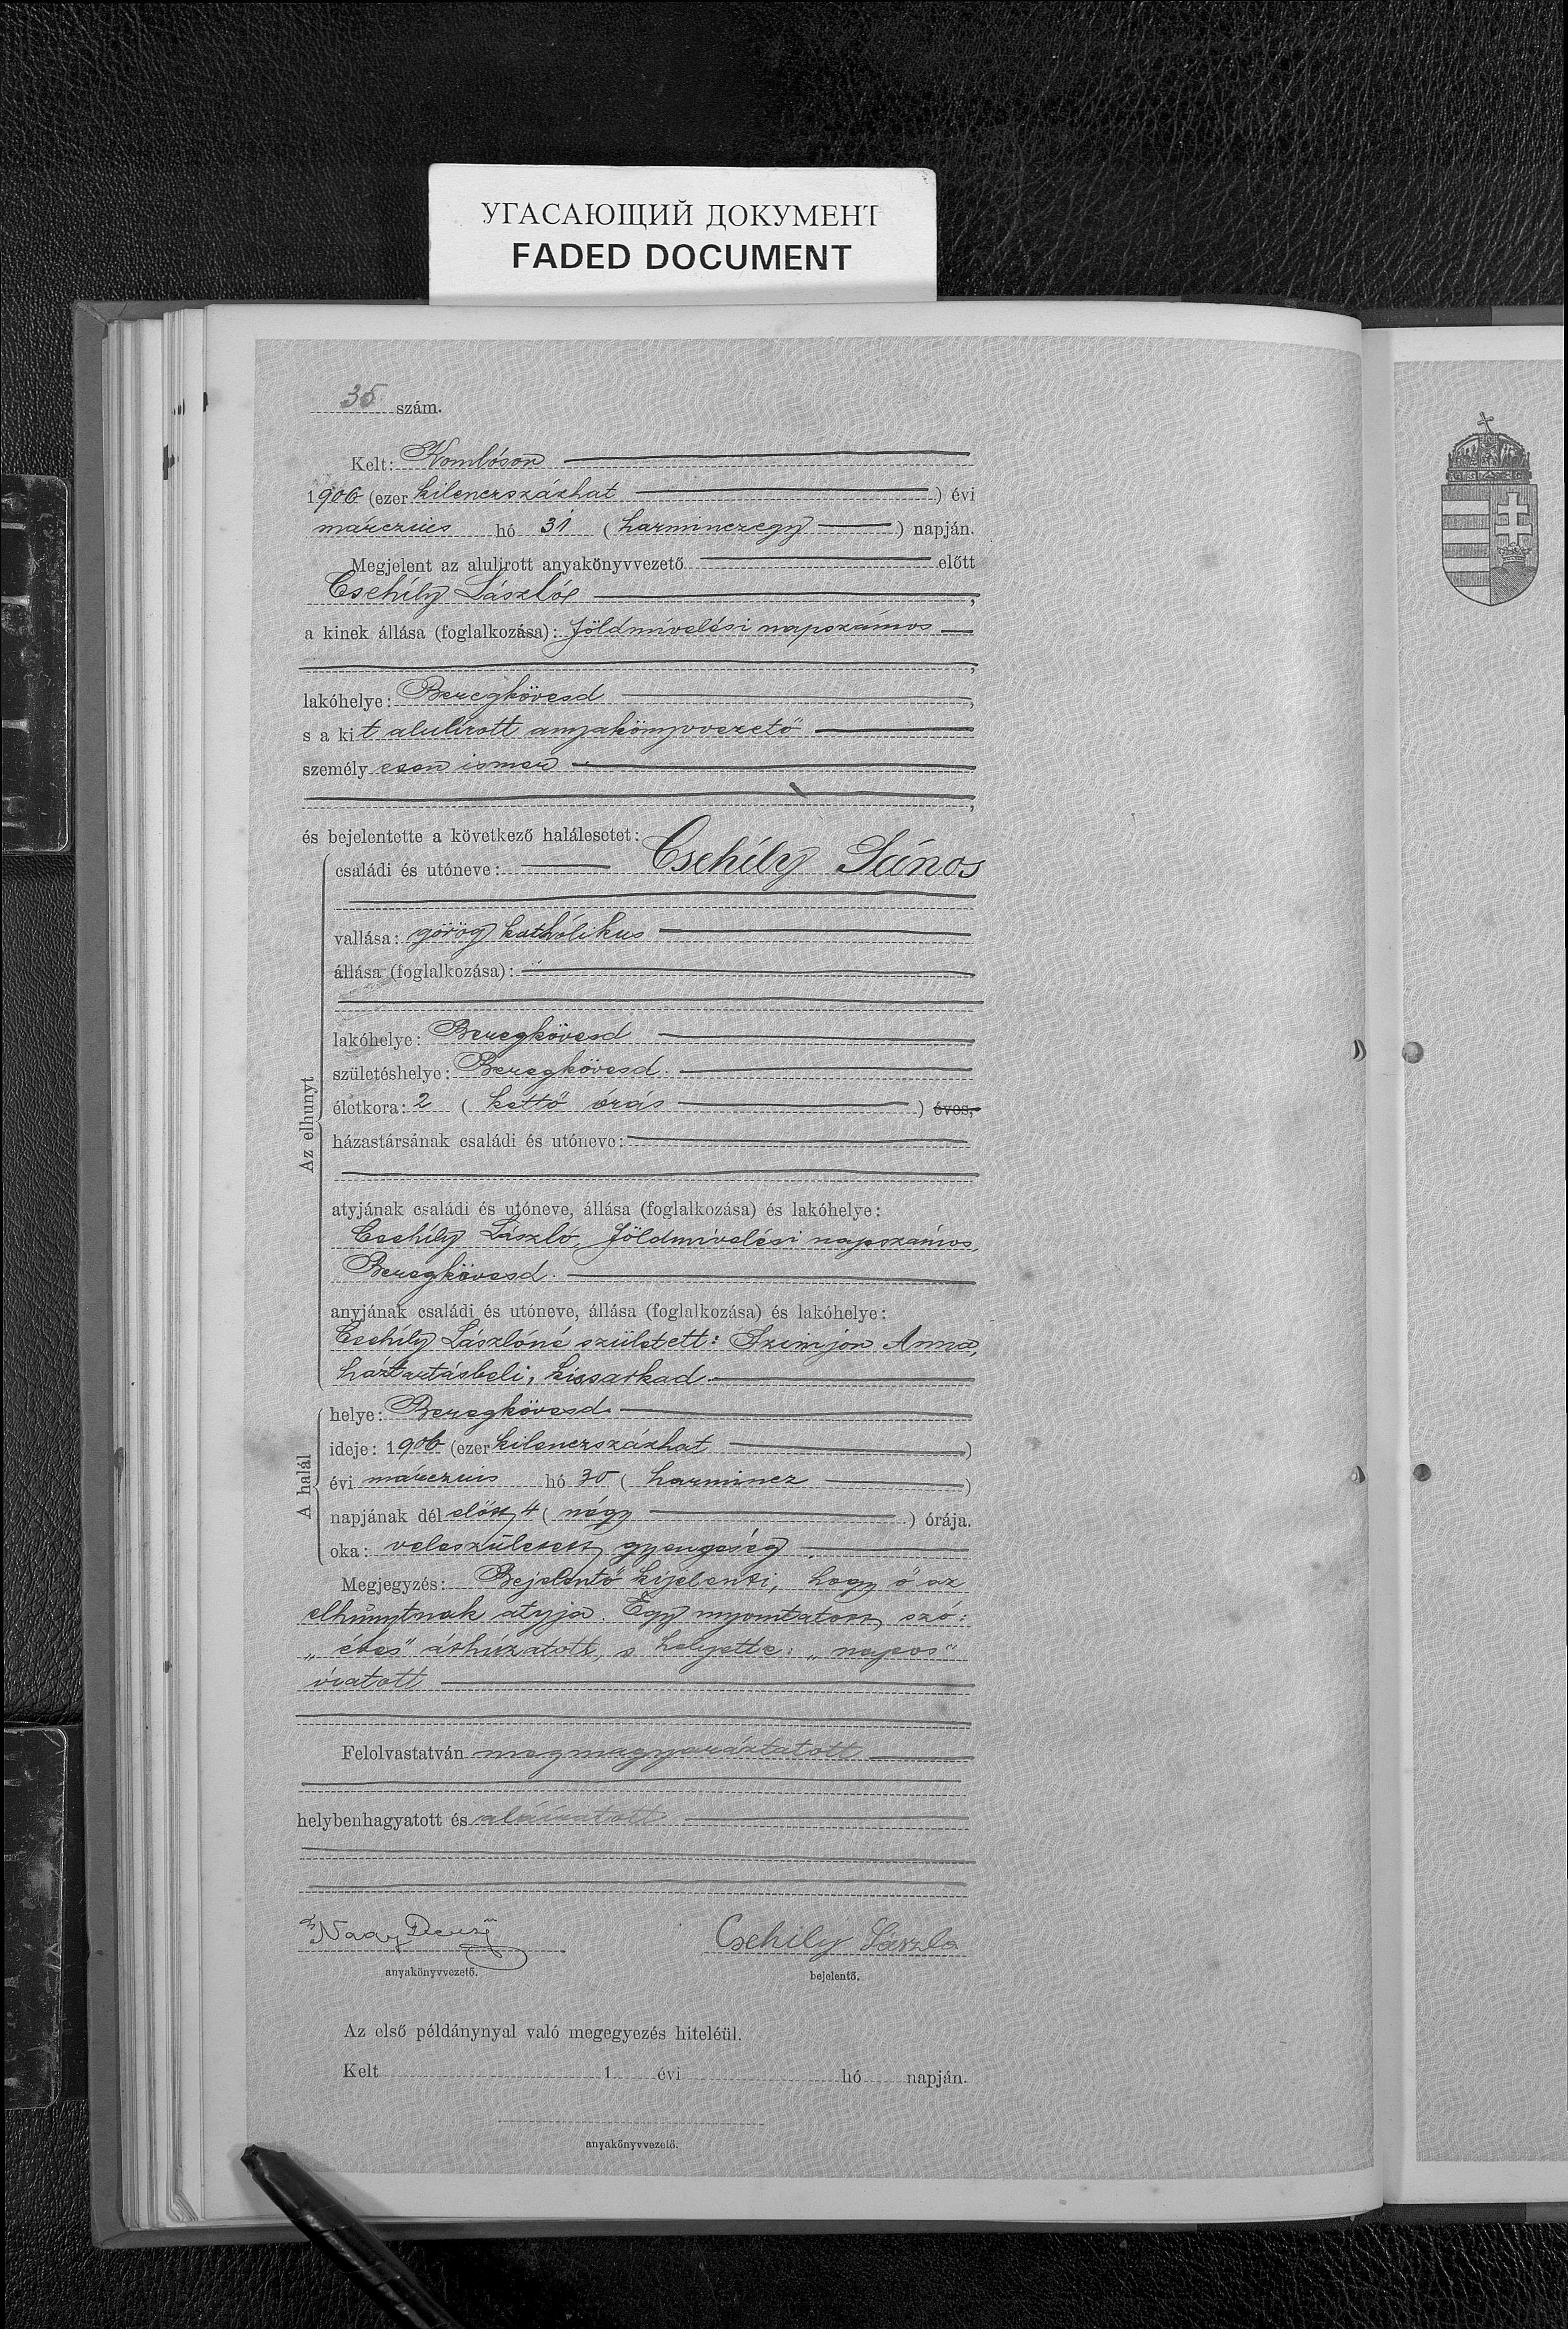 УГАСАЮЩИЙ ДОКУМЕНТ
FADED DOCUMENT
35 szám.
Kelt: Komlóson
1906 (ezer kilenczszázhat) évi
márczius hó 31 (harminczegy) napján.
Megjelent az alulirott anyakönyvvezető előtt
Csehily László,
a kinek állása (foglalkozása): földmivelési napszámos
,
lakóhelye: Beregkövesd,
s a kit alulirott anyakönyvvezető
személyesen ismer
,
és bejelentette a következő halálesetet:
Az elhunyt
családi és utóneve: Csehily János
vallása: görög kathólikus
állása (foglalkozása):
lakóhelye: Beregkövesd
születéshelye: Beregkövesd.
életkora: 2 (kettő órás) éves,
házastársának családi és utóneve:
atyjának családi és utóneve, állása (foglalkozása) és lakóhelye:
Csehily László, földmivelési napszámos,
Beregkövesd.
anyjának családi és utóneve, állása (foglalkozása) és lakóhelye:
Csehily Lászlóné született: Szimjon Anna,
háztartásbeli, kissarkad.
A halál
helye: Beregkövesd.
ideje: 1906 (ezer kilenczszázhat)
évi márczius hó 30 (harmincz)
napjának dél előtt 4 (négy) órája.
oka: veleszületett gyengeség.
Megjegyzés: Bejelentő kijelenti, hogy ő az
elhúnytnak atyja. Egy nyomtatott szó:
„éves" áthúzatott, s helyette: „napos"
íratott
Felolvastatván megmagyaráztatott
helybenhagyatott és aláíratott
Nagy
anyakönyvvezető.
Csehily László
bejelentő.
Az első példánynyal való megegyezés hiteléül.
Kelt 1 évi hó napján.
anyakönyvvezető.